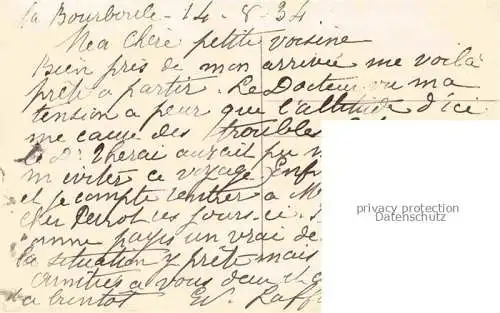 la Bourboule - 14 - 8 - 34
Ma Chère petite voisine
Bien près de mon arrivée me voilà
prête a partir. Le Docteur vu ma
tension a peur que l'altitude d'ici
me cause des troubles
le Dr aurait pu
m'éviter ce voyage. Enfin
et je compte rentrer a
ces jours-ci.
comme pays un vrai
la situation y prête mais
amitiés a vous deux et
a bientot Ev. Laff
privacy protection
Datenschutz